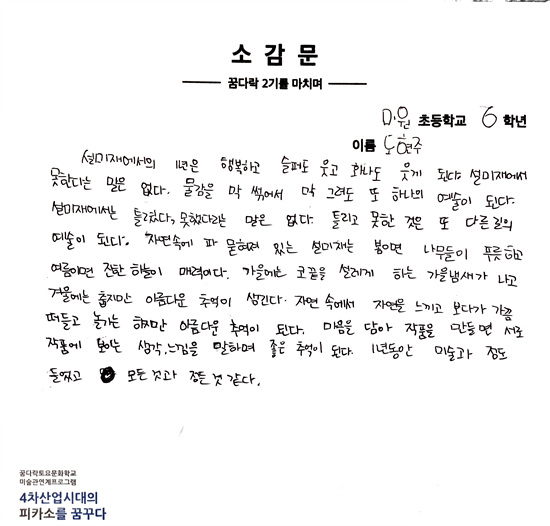 소 감 문
꿈다락 2기를 마치며
미원 초등학교 6 학년
이름 도현주
설미재에서의 1년은 행복하고 슬퍼도 웃고 화나도 웃게 된다. 설미재에서
못한다는 말은 없다. 물감을 막 썪어서 막 그려도 또 하나의 예술이 된다.
설미재에서는 틀렸다, 못했다라는 말은 없다. 틀리고 못한 것은 또 다른 길의
예술이 된다. 자연속에 파 묻혀져 있는 설미재는 봄이면 나무들이 푸릇하고
여름이면 진한 하늘이 매력이다. 가을에는 코끝을 설레게 하는 가을냄새가 나고
겨울에는 춥지만 아름다운 추억이 생긴다. 자연 속에서 자연을 느끼고 보다가 가끔
떠들고 놀기는 하지만 아름다운 추억이 된다. 마음을 담아 작품을 만들면 서로
작품에 보이는 생각, 느낌을 말하며 좋은 추억이 된다. 1년동안 미술과 정도
들었고 모든 것과 정든 것 같다.
꿈다락토요문화학교
미술관연계프로그램
4차산업시대의
피카소를 꿈꾸다